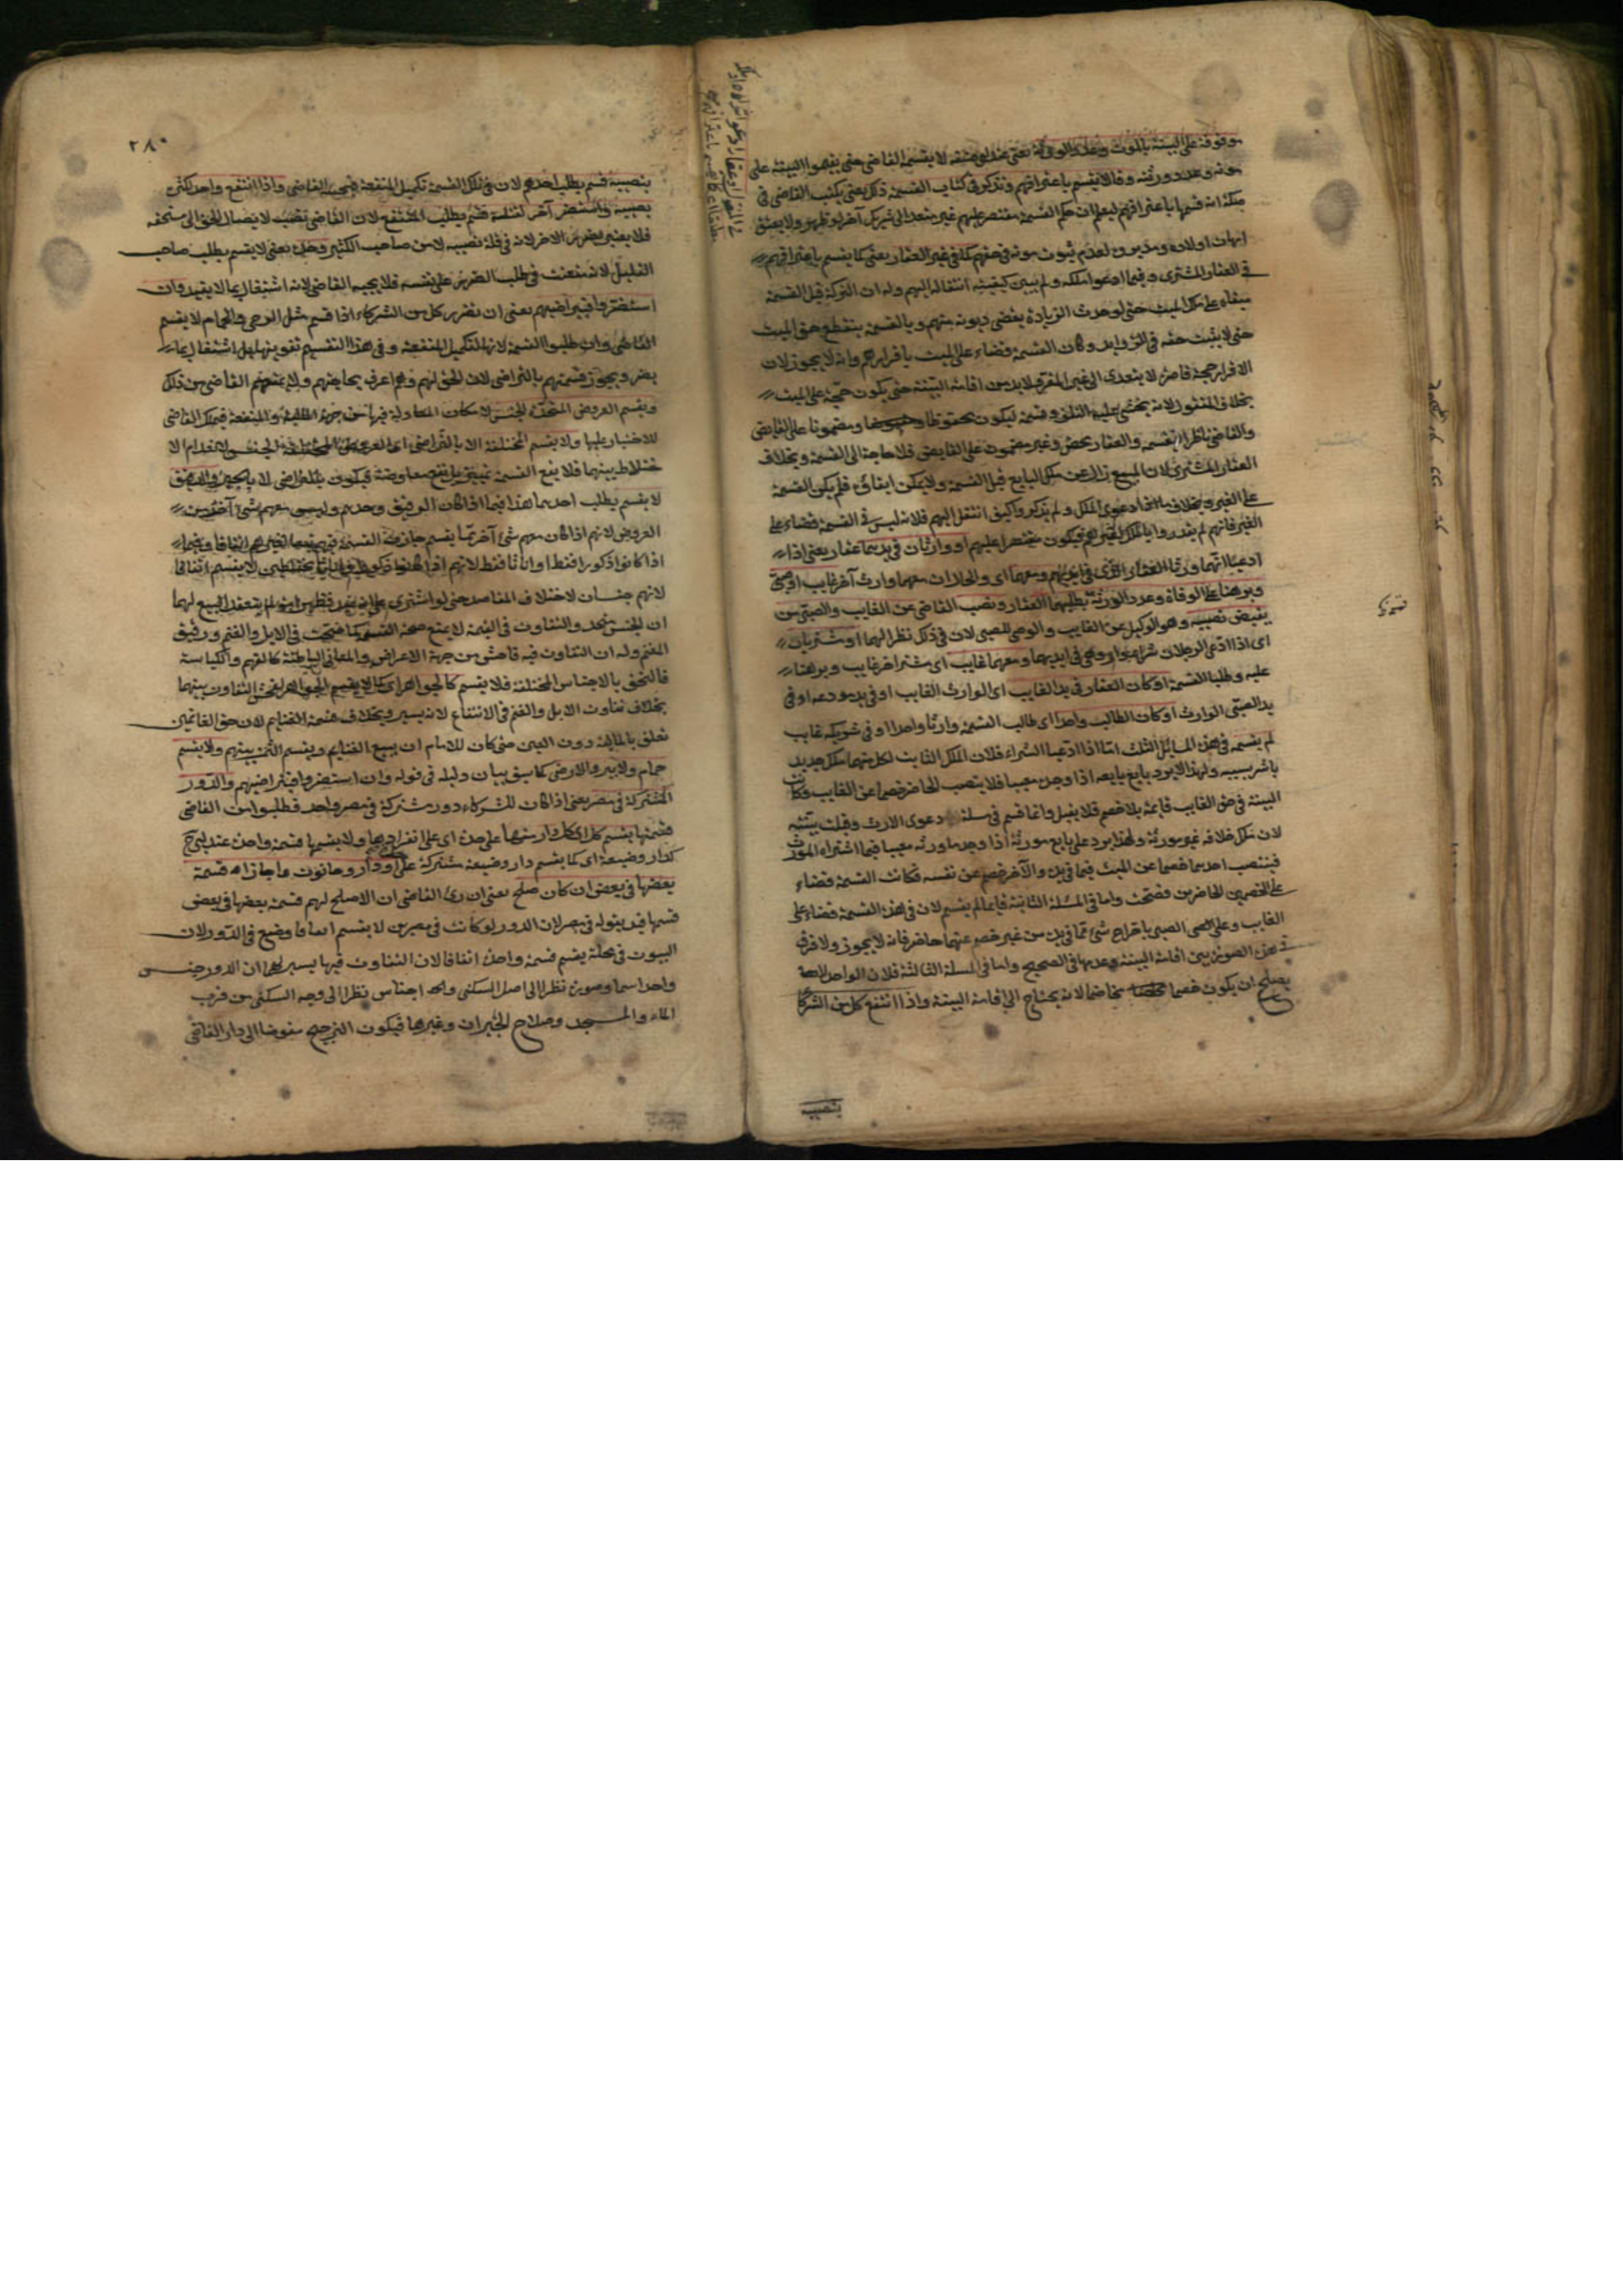 موقوفة على البينة بالموت وعدد الورثة يعني عند ابي حنيفة لا يقسم القاضي حتى يقيموا البينة على
موته وعدد ورثته وقالا يقسم باعترافهم وتذكر في كتاب القسمة ذلك يعني يكتب القاضي في
صكه انه قسمها باعترافهم ليعلم ان حكم القسمة مقتصر عليهم غير متعد الى شريك آخر لو ظهر ولا يعتق
امهات اولاده ومدبروه لعدم ثبوت موته في حقهم كما في غير العقار يعني كما يقسم باعترافهم
في العقار المشترى وفيما ادعوا ملكه ولم يبين كيفية انتقاله اليهم وله ان التركة قبل القسمة
مبقاة على ملك الميت حتى لو حدث الزيادة يقضى ديونه منهم وبالقسمة ينقطع حق الميت
حتى لا يثبت حقه في الزوايد وكان القسمة قضاء على الميت باقرارهم وانه لا يجوز لان
الاقرار حجة قاصرة لا يتعدى الى غير المقر فلا بد من اقامة البينة حتى يكون حجة على الميت
بخلاف المنقول لانه يخشى عليه التلف وقسمته ليكون محفوظا ومضمونا على القابض
والقاضي ناظر اما نفسه والعقار محصن وغير مضمون على القابض فلا حاجة الى القسمة وبخلاف
العقار المشترى لان المبيع زال عن ملك البايع قبل القسمة ولا يمكن ابقاؤه فلم يكن القسمة
على الغير وبخلاف ما اذا ادعوا الملك ولم يذكروا كيف انتقل اليهم فلانه ليس في القسمة قضاء على
الغير فانهم لم يقروا بالملك لغيرهم فيكون مقتصرا عليهم او وارثان في يدهما عقار يعني اذا
ادعيا انهما ورثا العقار الذي في ايديهم ومعهما اي والحال ان معهما وارث آخر غايب او صبي
وبرهنا على الوفاة وعدد الورثة بطلبهما العقار ونصب القاضي عن الغايب والصبي من
يقبض نصيبه وهو الوكيل عن الغايب والوصي للصبي لان في ذلك نظرا لهما او مشتريان
اي اذا ادعى الرجلان شراء دار وهي في ايديهما ومعهما غايب اي مشتر آخر غايب وبرهنا
عليه وطلبا القسمة او كان العقار في يد الغايب اي الوارث الغايب او في يد مودعه او في
يد الصبي الوارث او كان الطالب واحدا اي طالب القسمة وارثا واحدا او في شريكه غايب
لم يقسم في هذه المسائل الثلث اما اذا ادعيا الشراء فلان الملك الثابت لكل منهما ملك جديد
باشر بسببه ولهذا لا يرد بايع بايعه اذا وجد معيبا فلا ينتصب الحاضر خصما عن الغايب فكانت
البينة في حق الغايب قائمة بلا خصم فلا يقبل وانما قسم في مسئلة دعوى الارث وقبلت بينته
لان ملك خلافة عن مورثه ولهذا يرد على بايع مورثه اذا وجد ما ورثه معيبا فيما اشتراه المورث
فينتصب احدهما خصما عن الميت فيما في يده والآخر خصم عن نفسه فكانت القسمة قضاء
على الخصمين الحاضرين فصحت واما في المسئلة الثانية فانما لم يقسم لان في هذه القسمة قضاء على
الغايب وعلى الصبي باخراج شيء مما في يده من غير خصم عنهما حاضر فانه لا يجوز ولا فرق
في هذه الصورة بين اقامة البينة وعدمها في الصحيح واما في المسئلة الثالثة فلان الواحد لا
يصلح ان يكون خصما مخاصما لانه يحتاج الى اقامة البينة واذا انتفع كل من الشركاء
بنصيبه
قسمة
٢٨٠
بنصيبه قسم بطلب احدهم لان في تلك القسمة تكميل المنفعة فيجب القاضي واذا انتفع واحد لكثرة
نصيبه واستضر آخر لقلته قسم بطلب المنتفع لان القاضي نصب لايصال الحق الى مستحقه
فلا يعتبر بضرر الآخر لانه في قلة نصيبه لا من صاحب الكثير وحده يعني لا يقسم بطلب صاحب
القليل لانه متعنت في طلب الضرر على نفسه فلا يجيبه القاضي لانه اشتغال بما لا يفيد وان
استضروا فبتراضيهم يعني ان تضرر كل من الشركاء اذا قسم مثل الرحى والحمام لا يقسم
القاضي وان طلبوا القسمة لانها لتكميل المنفعة وفي هذا التقسيم تفويتها بل اشتغال بما
يضر ويجوز قسمتهم بالتراضي لان الحق لهم وهم اعرف بحاجتهم ولا يمنعهم القاضي من ذلك
ويقسم العروض المتحدة الجنس لامكان المعادلة فيها من جهة المالية والمنفعة فيملك القاضي
الاجبار عليها ولا يقسم المختلفة الا بالتراضي اي العروض المختلفة الجنس لانعدام الا
ختلاط بينهما فلا يقع القسمة تمييزا بل يقع معاوضة فيكون بالتراضي لا بالجبر والرقيق
لا يقسم بطلب احدهما هذا فيما اذا كان الرقيق وحدهم وليس معهم شيء آخر من
العروض لانهم اذا كان معهم شيء آخر مما يقسم جازت القسمة فيهم تبعا لغيرهم اتفاقا وفيما
اذا كانوا ذكورا فقط او اناثا فقط لانهم اذا كانوا ذكورا واناثا مختلطين لا يقسم اتفاقا
لانهم جنسان لاختلاف المقاصد حتى لو اشترى على انه عبد فظهر امة لم ينعقد البيع لهما
ان الجنس متحد والتفاوت في القيمة لا يمنع صحة القسمة كما صحت في الابل والغنم ورقيق
المغنم وله ان التفاوت فيه فاحش من جهة الاعراض والمعاني الباطنة كالفهم والكياسة
فالتحق بالاجناس المختلفة فلا يقسم كالجواهر اي كما لا يقسم الجواهر لفحش التفاوت بينهما
بخلاف تفاوت الابل والغنم في الانتفاع لانه يسير وبخلاف قسمة الغنايم لان حق الغانمين
تعلق بالمالية دون العين حتى كان للامام ان يبيع الغنايم ويقسم الثمن بينهم ولا يقسم
حمام ولا بير والارحى كما سبق بيان دليله في قوله وان استضروا فبتراضيهم والدور
المشتركة في مصر يعني اذا كان للشركاء دور مشتركة في مصر واحد فطلبوا من القاضي
قسمتها يقسم كل اي كل دار منها على حدة اي على انفرادها ولا يقسمها قسمة واحدة عند ابي ح
كدار وضيعة اي كما يقسم دار وضيعة مشتركة على حدة او دار وحانوت وما جازاه قسمة
بعضها في بعض ان كان صلح يعني ان رأى القاضي ان الاصلح لهم قسمة بعضها في بعض
قسمها قيد بقوله في مصر لان الدور لو كانت في مصرين لا يقسم اتفاقا وضع في الدور لان
البيوت في محلة يقسم قسمة واحدة اتفاقا لان التفاوت فيها يسير لهما ان الدور جنس
واحد اسما وصورة نظرا الى اصل السكنى وله اجناس نظرا الى وجه السكنى من قرب
الماء والمسجد وصلاح الجيران وغيرها فيكون الترجيح مفوضا الى راي القاضي